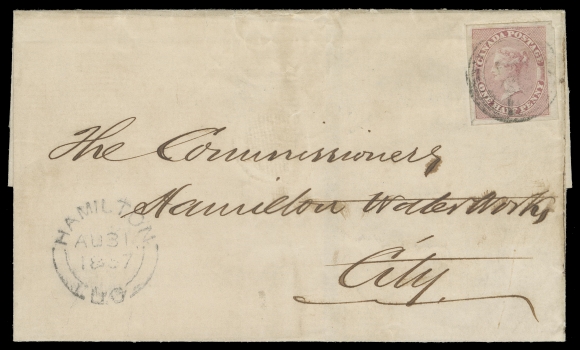 CANADA POSTAGE
ONE HALF PENNY
The Commissioners,
Hamilton Water Works,
City.
HAMILTON
AU 31
1857
ONT